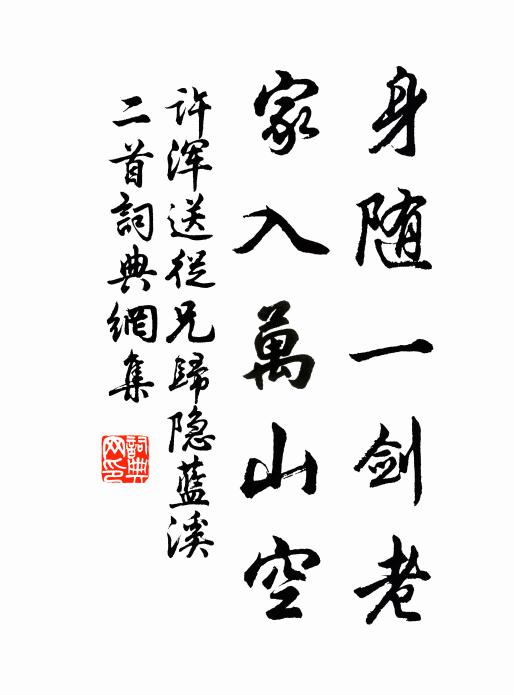 身随一剑老
家入萬山空
许浑送従兄歸隐藍溪
二首詞典網集
詞典
网印